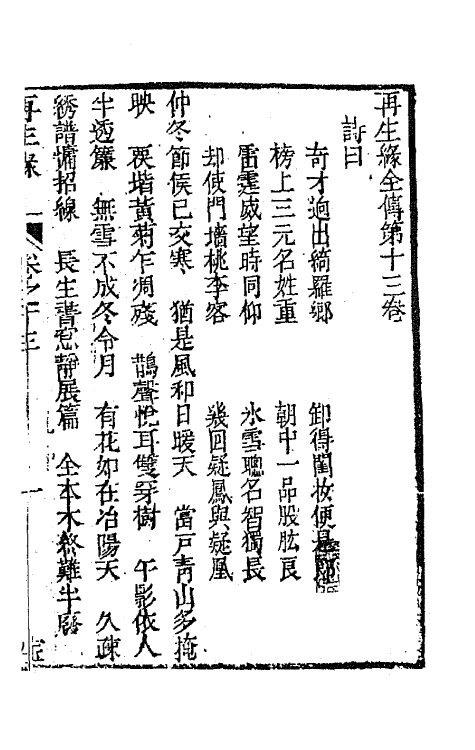 再生緣全傳第十三卷
詩曰
奇才逈出綺羅鄉　卸得閨妝便是
榜上三元名姓重　朝中一品股肱良
雷霆威望時同仰　氷雪聰名智獨長
却使門墻桃李客　幾回疑鳳與疑凰
仲冬節候已交寒　猶是風和日暖天　當戶靑山多掩
映　裛堦黃菊乍凋殘　鵲聲悅耳雙穿樹　午影依人
半透簾　無雪不成冬令月　有花如在冶陽天　久疎
綉譜慵招線　長生書怠靜展篇　全本木終難半廢
再生緣　卷之十三　一